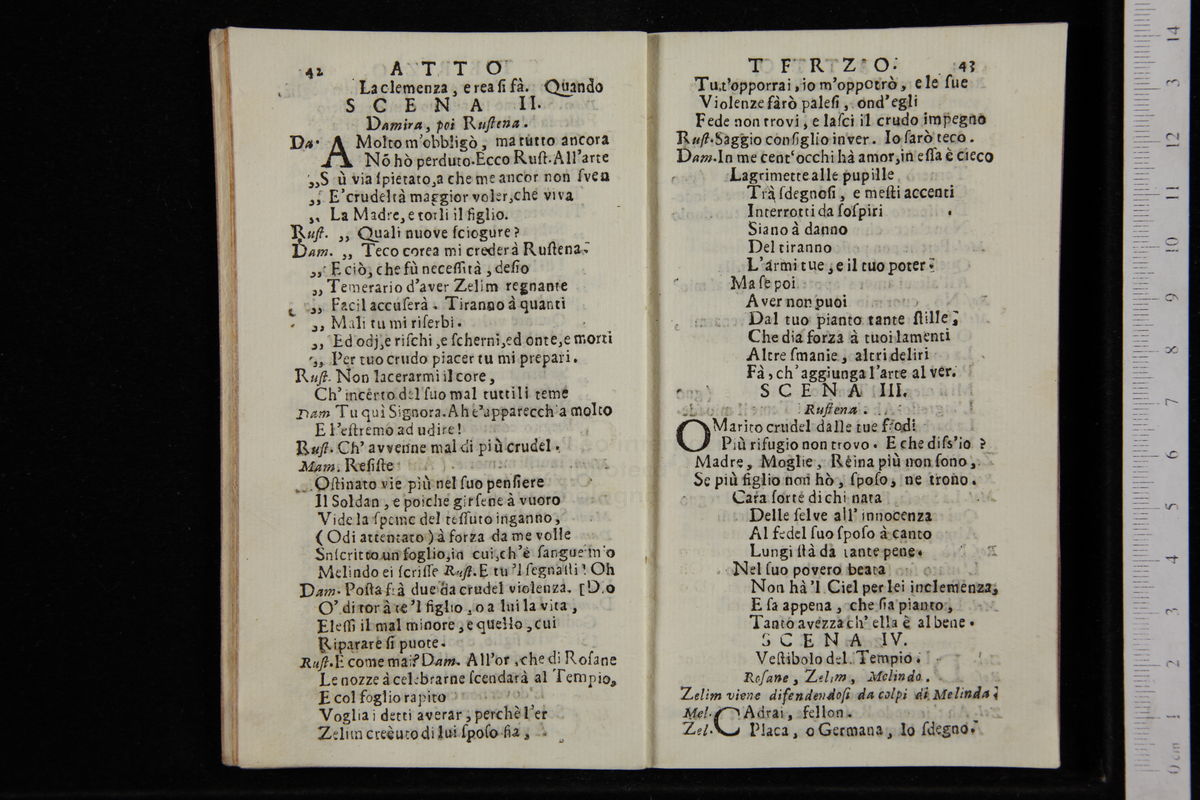 42 ATTO
La clemenza, e rea si fà. Quando
SCENA II.
Damira, poi Rustena.
Da. A Molto m'obbligò, ma tutto ancora
Nō hò perduto. Ecco Rust. All'arte
„S ù via spietato, a che me ancor non sven
„ E' crudeltà maggior voler, che viva
„ La Madre, e torli il figlio.
Rust. „ Quali nuove sciogure?
Dam. „ Teco corea mi crederà Rustena.
„ E ciò, che fù necessità, desio
„ Temerario d'aver Zelim regnante
„ Facil accuserà. Tiranno à quanti
„ Mali tu mi riserbi.
„ Ed odj, e rischi, e scherni, ed onte, e morti
„ Per tuo crudo piacer tu mi prepari.
Rust. Non lacerarmi il core,
Ch' incerto del suo mal tuttili teme
Dam Tu quì Signora. Ah t'apparecchia molto
E l'estremo ad udire!
Rust. Ch' avvenne mal di più crudel.
Mam. Resiste
Ostinato vie più nel suo pensiere
Il Soldan, e poiche girsene à vuoro
Vide la speme del tessuto inganno,
(Odi attentato) à forza da me volle
Snscritto un foglio, in cui, ch'è sangue mio
Melindo ei scrisse Rust. E tu 'l segnasti! Oh
Dam. Posta frà due da crudel violenza. [Dio
O' di tor à te 'l figlio, o a lui la vita,
Elessi il mal minore, e quello, cui
Riparare si puote.
Rust. E come mai? Dam. All'or, che di Rosane
Le nozze à celebrarne scendarà al Tempio,
E col foglio rapito
Voglia i detti averar, perchè l'er
Zelim creduto di lui sposo sia,
TERZO. 43
Tu t'opporrai, io m'opporrò, e le sue
Violenze farò palesi, ond'egli
Fede non trovi, e lasci il crudo impegno
Rust. Saggio consiglio inver. Io sarò teco.
Dam. In me cent'occhi hà amor, in essa è cieco
Lagrimette alle pupille
Trà sdegnosi, e mesti accenti
Interrotti da sospiri
Siano à danno
Del tiranno
L'armi tue, e il tuo poter.
Ma se poi
Aver non puoi
Dal tuo pianto tante stille,
Che dia forza à tuoi lamenti
Altre smanie, altri deliri
Fà, ch'aggiunga l'arte al ver.
SCENA III.
Rustena.
O Marito crudel dalle tue frodi
Più rifugio non trovo. E che diss'io ?
Madre, Moglie, Reina più non sono,
Se più figlio non hò, sposo, ne trono.
Cara sorte di chi nata
Delle selve all' innocenza
Al fedel suo sposo à canto
Lungi stà da tante pene.
Nel suo povero beata
Non hà 'l Ciel per lei inclemenza,
E sa appena, che sia pianto,
Tanto avezza ch' ella è al bene.
SCENA IV.
Vestibolo del Tempio.
Rosane, Zelim, Melindo.
Zelim viene difendendosi da colpi di Melinda.
Mel. CAdrai, fellon.
Zel. Placa, o Germana, lo sdegno.